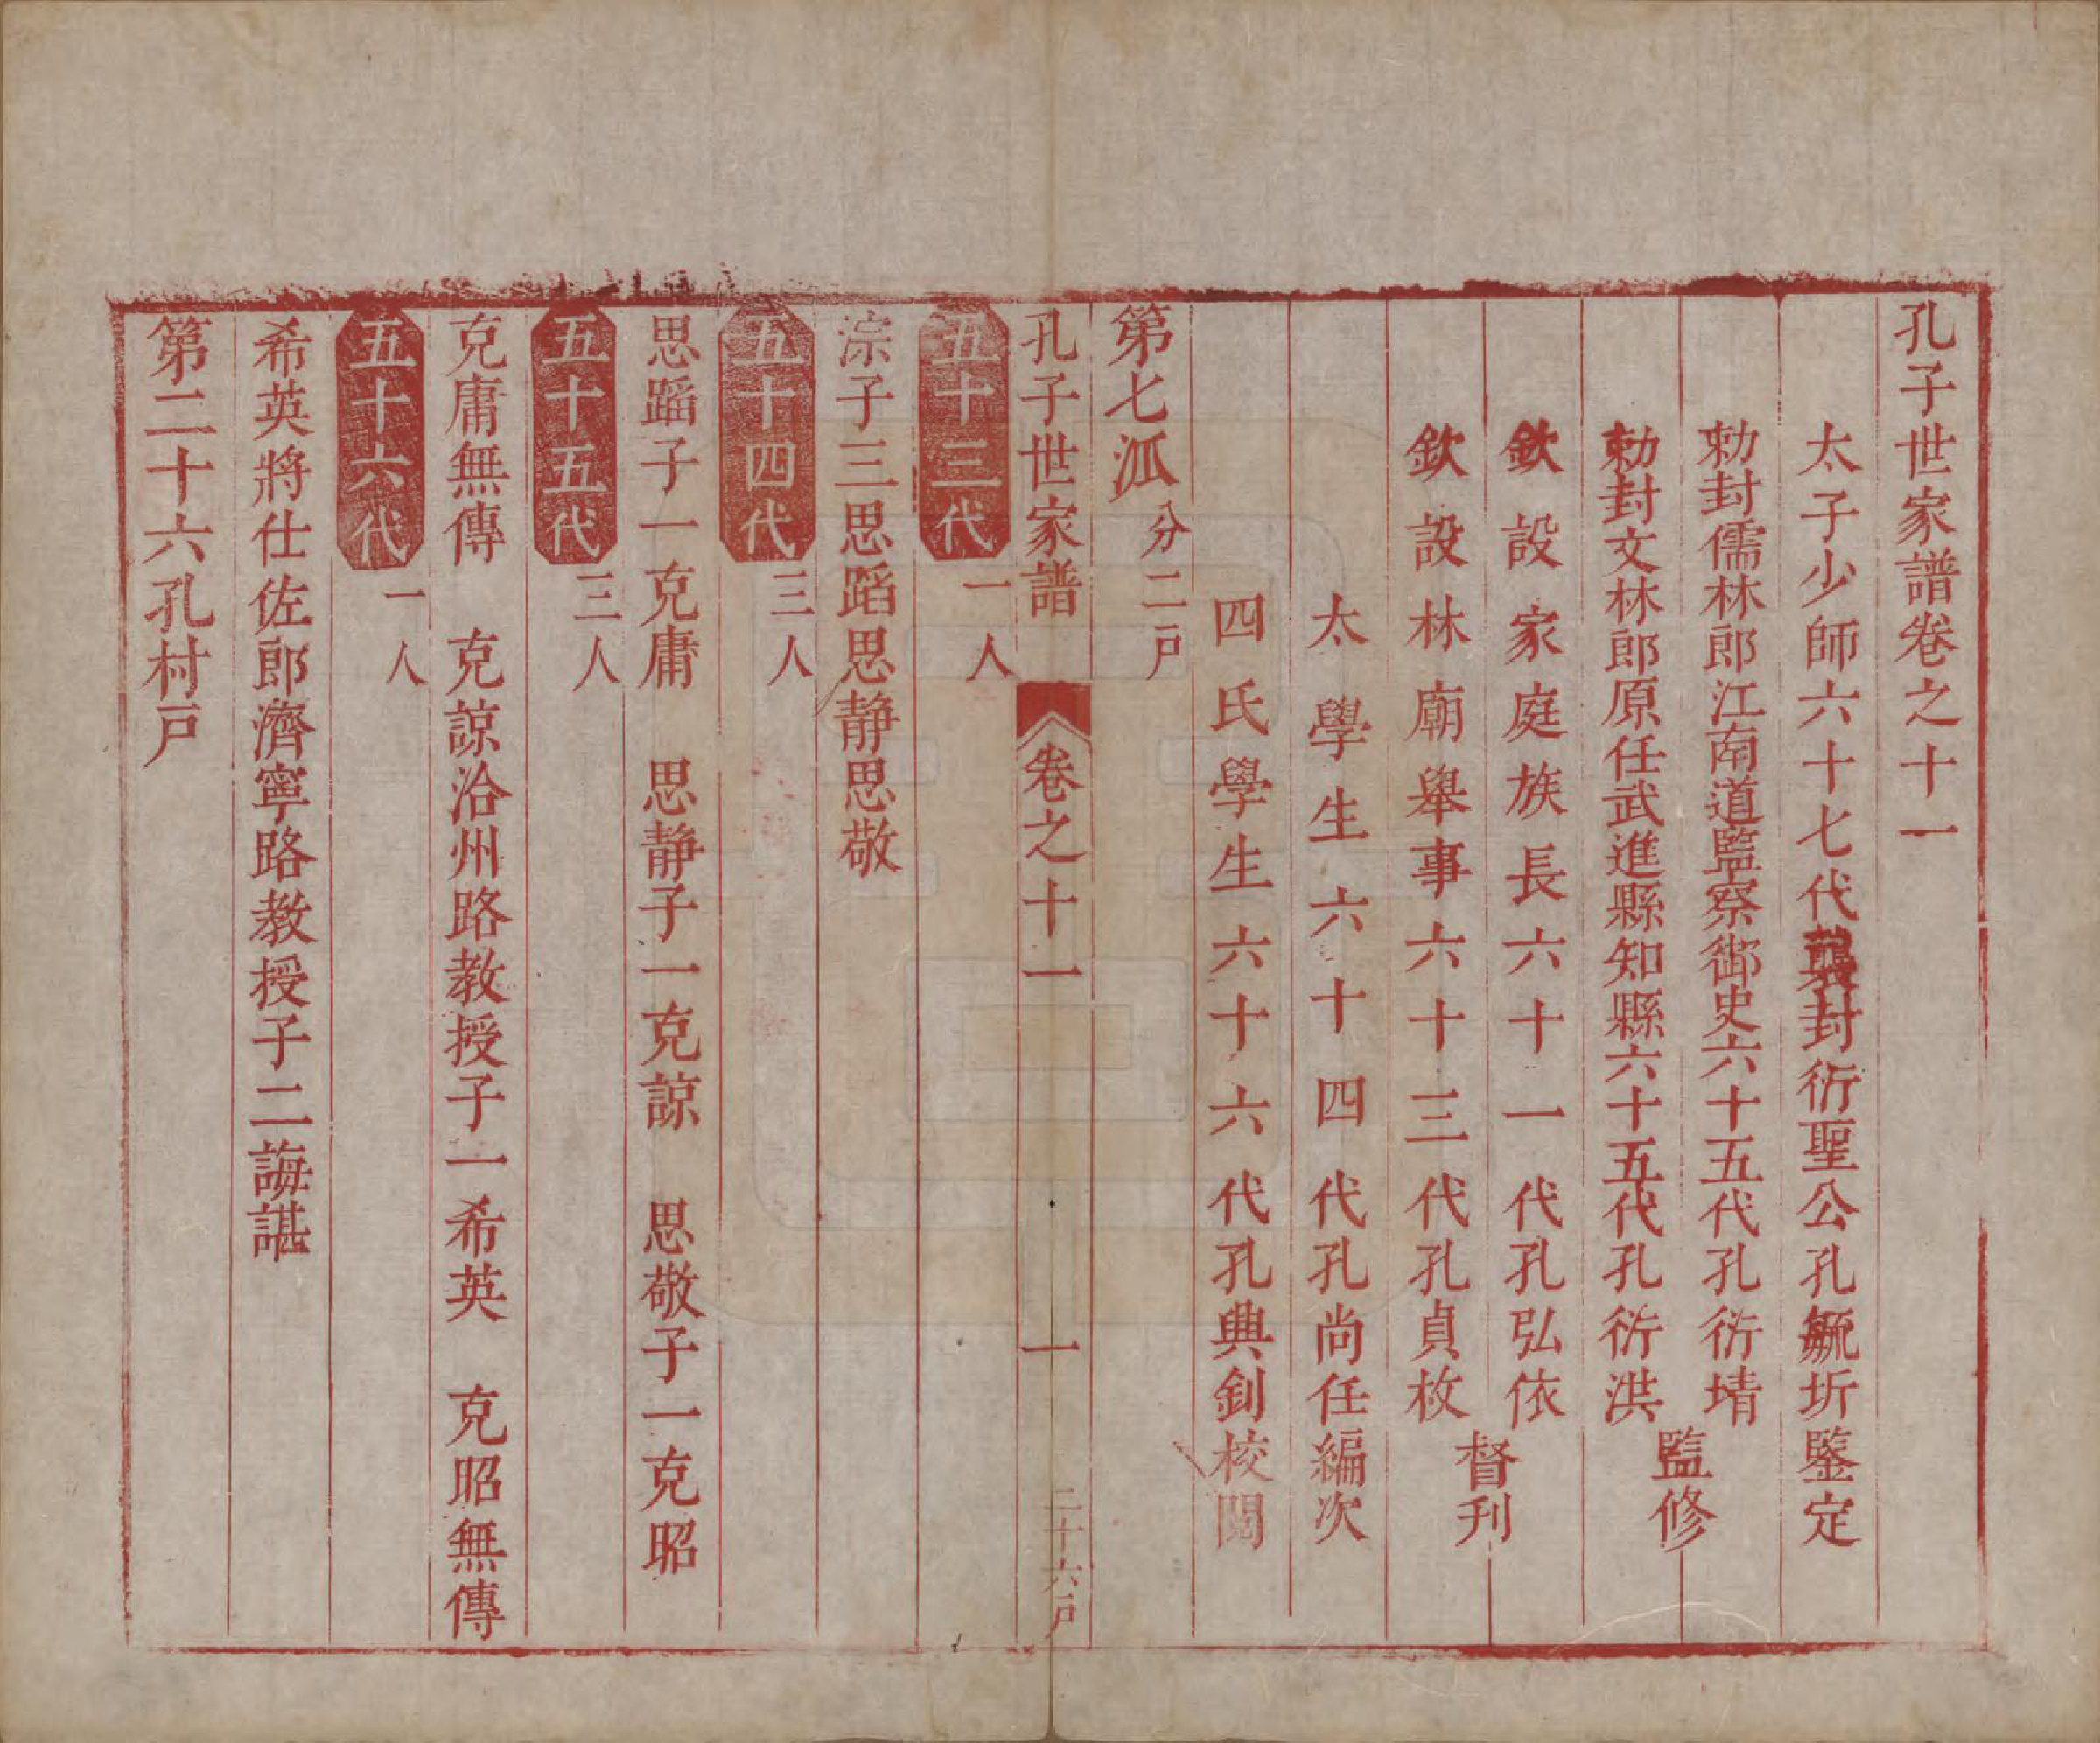 孔子世家譜卷之十一
太子少師六十七代襲封衍聖公孔毓圻鑒定
勅封儒林郎江南道監察御史六十五代孔衍堉
勅封文林郎原任武進縣知縣六十五代孔衍洪
監修
欽設家庭族長六十一代孔弘依
欽設林廟舉事六十三代孔貞枚
督刋
太學生六十四代孔尚任編次
四氏學生六十六代孔興釗校閱
第七泒分二戸
孔子世家譜 卷之十一 一 二十六戸
五十三代 一人
淙子三思蹈思靜思敬
五十四代 三人
思蹈子一克庸 思靜子一克諒 思敬子一克昭
五十五代 三人
克庸無傳 克諒洽州路教授子一希英 克昭無傳
五十六代 一人
希英將仕佐郎濟寧路教授子二誨諶
第二十六孔村戸